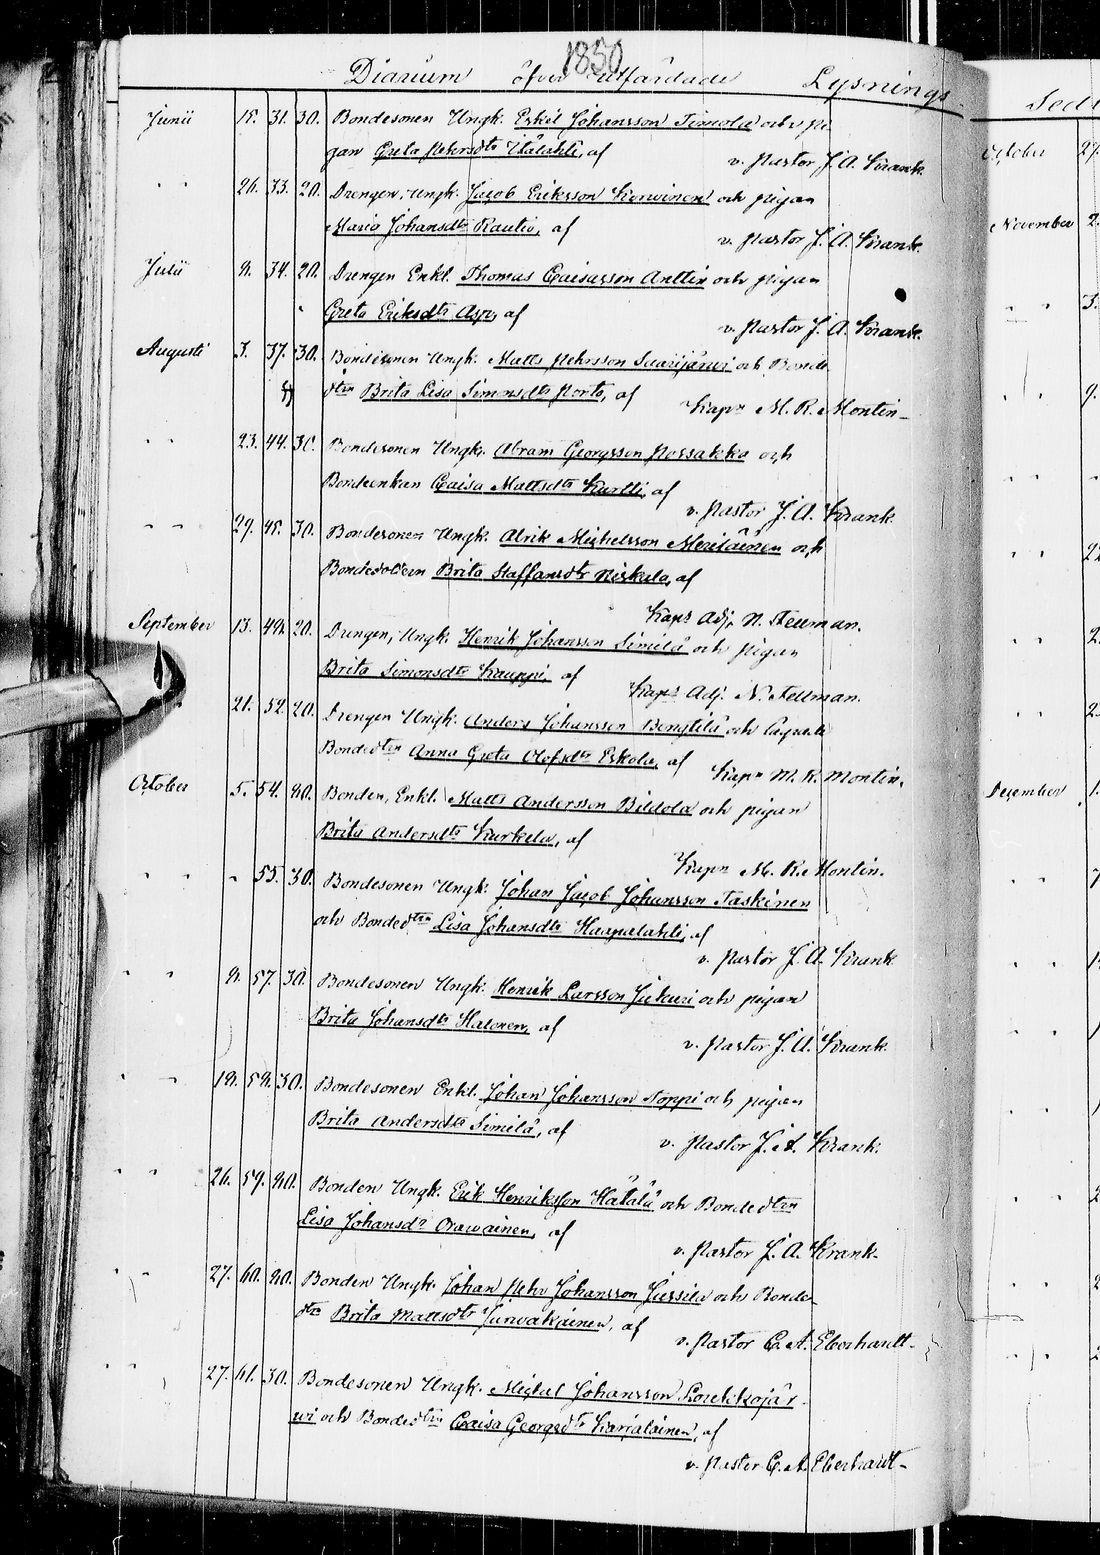 1850
Diarium öfver utfärdade Lysnings
Junii 15. 31. 30. Bondesonen Ungk. Eskil Johansson Timola och pi
gan Greta Pehrsdtr Itälahti, af
v. Pastor J. A. Krank.
" " 26. 33. 20. Drengen, Ungk. Jacob Eriksson Korwinen och pigan
Maria Johansdtr Rautio, af
v. Pastor J. A. Krank.
Julii 9. 34. 20. Drengen Enkl. Thomas Caisasson Anttix och pigan
Greta Eriksdtr Asp, af
v. Pastor J. A. Krank.
Augusti 3. 37. 30. Bondesonen Ungk. Matts Pehrsson Suarijärwi och Bonde
dtrn Brita Lisa Simonsdtr Porto, af
Kapn M. R. Montin
" " 23. 44. 30. Bondesonen Ungk. Abram Georgsson Possakka och
Bondeenkan Caisa Mattsdtr Kurtti, af
v. Pastor J. A. Krank.
" " 29. 45. 30. Bondesonen Ungk. Alrik Michelsson Meriläinen och
Bondedottern Brita Staffansdtr Niskala, af
Kaps Adj. N. Fellman.
September 13. 49. 20. Drengen, Ungk. Henrik Johansson Similä och pigan
Brita Simonsdtr Kauppi, af
Kaps Adj. N. Fellman.
21. 52. 20. Drengen Ungk. Anders Johansson Bengtilä och
Bondedtrn Anna Greta Olofsdtr Eskola, af
Kapn M. R. Montin.
October 5. 54. 20. Bonden, Enkl. Matts Andersson Bildola och pigan
Brita Andersdtr Kurkela, af
Kapn M. R. Montin.
" " " 55. 30. Bondesonen Ungk. Johan Jacob Johansson Taskinen
och Bondedtrn Lisa Johansdtr Haapalahti, af
v. Pastor J. A. Krank
" " 9. 57. 30. Bondesonen Ungk. Henrik Larsson Jukuri och pigan
Brita Johansdtr Halonen, af
v. Pastor J. A. Krank.
" " 19. 58. 30. Bondesonen Enkl. Johan Johansson Noppi och pigan
Brita Andersdtr Similä, af
v. Pastor J. A. Krank.
" " 26. 59. 20. Bonden Ungk. Erik Henriksson Hätälä och Bondedtrn
Lisa Johansdr Orawainen, af
v. Pastor J. A. Krank.
" " 27. 60. 20. Bonden Ungk. Johan Pehr Johansson Jussila och Bonde
dtrn Brita Mattsdtr Jurwakainen, af
v. Pastor C. A. Eberhardt
" " 27. 61. 30. Bondesonen Ungk. Michel Johansson Loukkojär
wi och Bondedtrn Caisa Georgsdtr Karjalainen, af
v. Pastor C. A. Eberhardt
Sed
October 27.
November 2.
" " 3.
" " 9.
" " 22
" " 2.
" " 2.
December 1.